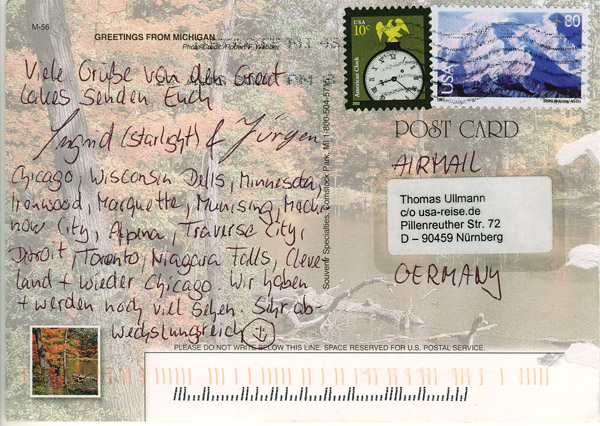 M-56
GREETINGS FROM MICHIGAN
Photo Credit: Robert F.
Viele Grüße von den Great
Lakes senden Euch
Ingrid (starlight) & Jürgen
Chicago, Wisconsin Dells, Minnesota,
Ironwood, Marquette, Munising, Macki
naw City, Alpena, Traverse City,
Detroit, Toronto, Niagara Falls, Cleve
land + wieder Chicago. Wir haben
+ werden noch viel sehen. Sehr ab-
wechslungsreich
Souvenir Specialties, Comstock Park, MI 1-800-504-57
USA
10c
American Clock
2003
USA
80
POST CARD
AIRMAIL
Thomas Ullmann
c/o usa-reise.de
Pillenreuther Str. 72
D – 90459 Nürnberg
GERMANY
PLEASE DO NOT WRITE BELOW THIS LINE. SPACE RESERVED FOR U.S. POSTAL SERVICE.